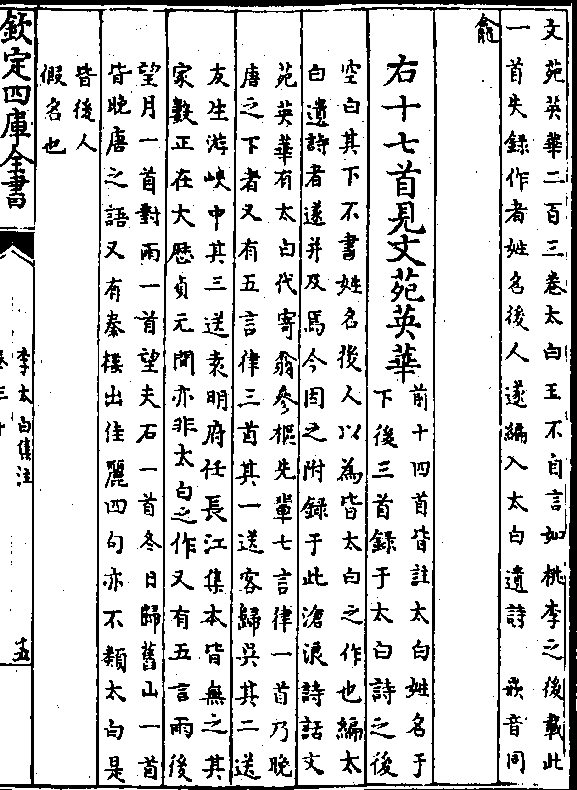 文苑英華二百三卷太白玉不自言如桃李之後載此
一首失録作者姓名後人遂編入太白遺詩　嵌音同
龕
右十七首見文苑英華
前十四首皆註太白姓名于
下後三首録于太白詩之後
空白其下不書姓名後人以為皆太白之作也編太
白遺詩者遂并及焉今因之附録于此滄浪詩話文
苑英華有太白代寄翁參樞先輩七言律一首乃晚
唐之下者又有五言律三首其一送客歸吳其二送
友生游峽中其三送袁明府任長江集本皆無之其
家數正在大歴貞元間亦非太白之作又有五言雨後
望月一首對雨一首望夫石一首冬日歸舊山一首
皆晚唐之語又有秦樓出佳麗四句亦不類太白是
皆後人
假名也
欽定四庫全書
李太白集注
卷三十
十五